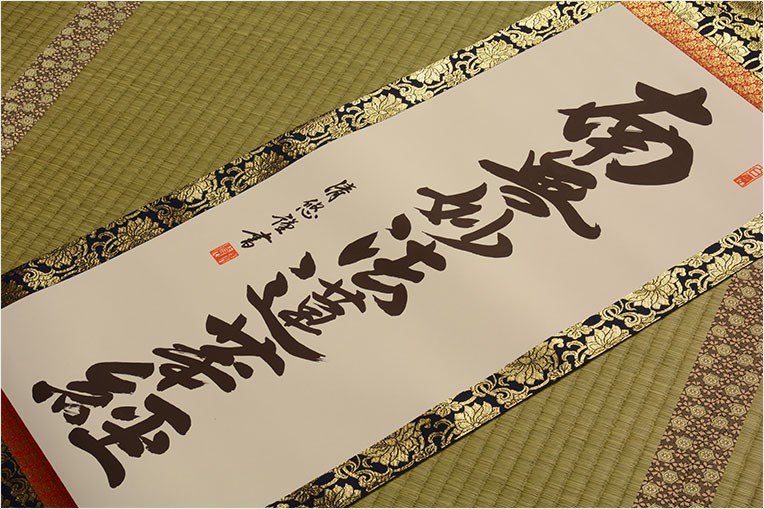 南無妙法蓮華経
清悠書